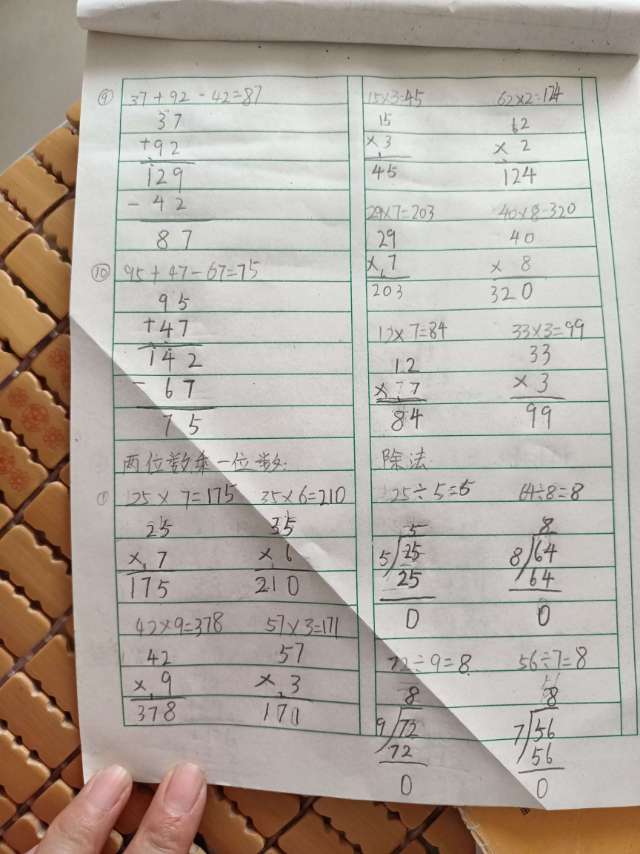 ⑨ 37+92-42=87
37
+92
129
-42
87
⑩ 95+47-67=75
95
+47
142
-67
75
两位数乘一位数
① 25×7=175 35×6=210
25 35
×7 ×6
175 210
42×9=378 57×3=171
42 57
×9 ×3
378 171
15×3=45 62×2=124
15 62
×3 ×2
45 124
29×7=203 40×8=320
29 40
×7 ×8
203 320
12×7=84 33×3=99
12 33
×7 ×3
84 99
除法
25÷5=5 64÷8=8
5 8
5/25 8/64
25 64
0 0
72÷9=8 56÷7=8
8 8
9/72 7/56
72 56
0 0